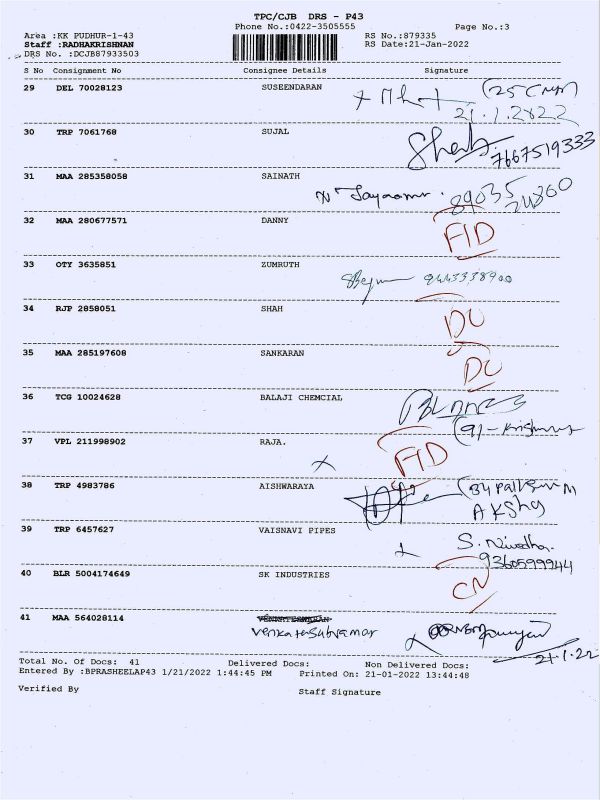 TPC/CJB DRS - P43
Phone No.:0422-3505555 Page No.:3
Area :KK PUDHUR-1-43 RS No.:879335
Staff :RADHAKRISHNAN RS Date:21-Jan-2022
DRS No. :DCJB87933503
S No Consignment No Consignee Details Signature
29 DEL 70028123 SUSEENDARAN
21.1.2022
30 TRP 7061768 SUJAL
7667519333
31 MAA 285358058 SAINATH
89035
32 MAA 280677571 DANNY
FID
33 OTY 3635851 ZUMRUTH
34 RJP 2858051 SHAH
DC
35 MAA 285197608 SANKARAN
DC
36 TCG 10024628 BALAJI CHEMCIAL
37 VPL 211998902 RAJA.
FID
38 TRP 4983786 AISHWARAYA
39 TRP 6457627 VAISNAVI PIPES
9360599944
40 BLR 5004174649 SK INDUSTRIES
CN
41 MAA 564028114
Venkatasubramar
21.1.22
Total No. Of Docs: 41 Delivered Docs: Non Delivered Docs:
Entered By :BPRASHEELAP43 1/21/2022 1:44:45 PM Printed On: 21-01-2022 13:44:48
Verified By Staff Signature